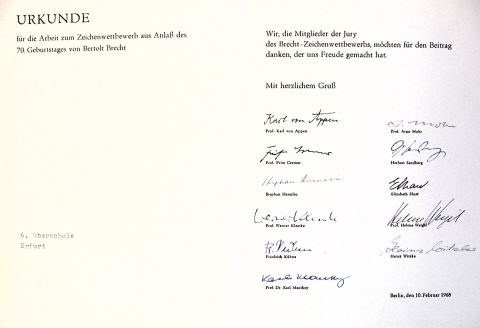 URKUNDE
für die Arbeit zum Zeichenwettbewerb aus Anlaß des
70. Geburtstages von Bertolt Brecht
6. Oberschule
Erfurt
Wir, die Mitglieder der Jury
des Brecht-Zeichenwettbewerbs, möchten für den Beitrag
danken, der uns Freude gemacht hat.
Mit herzlichem Gruß
Karl von Appen
Prof. Karl von Appen
Prof. Arno Mohr
Fritz Cremer
Prof. Fritz Cremer
Herbert Sandberg
Stephan
Stephan
Elisabeth
Werner Klemke
Prof. Werner Klemke
Helene Weigel
Prof. Helene Weigel
Friedrich Kühne
Heinz
Heinz
Prof. Dr. Karl
Berlin, den 10. Februar 1968